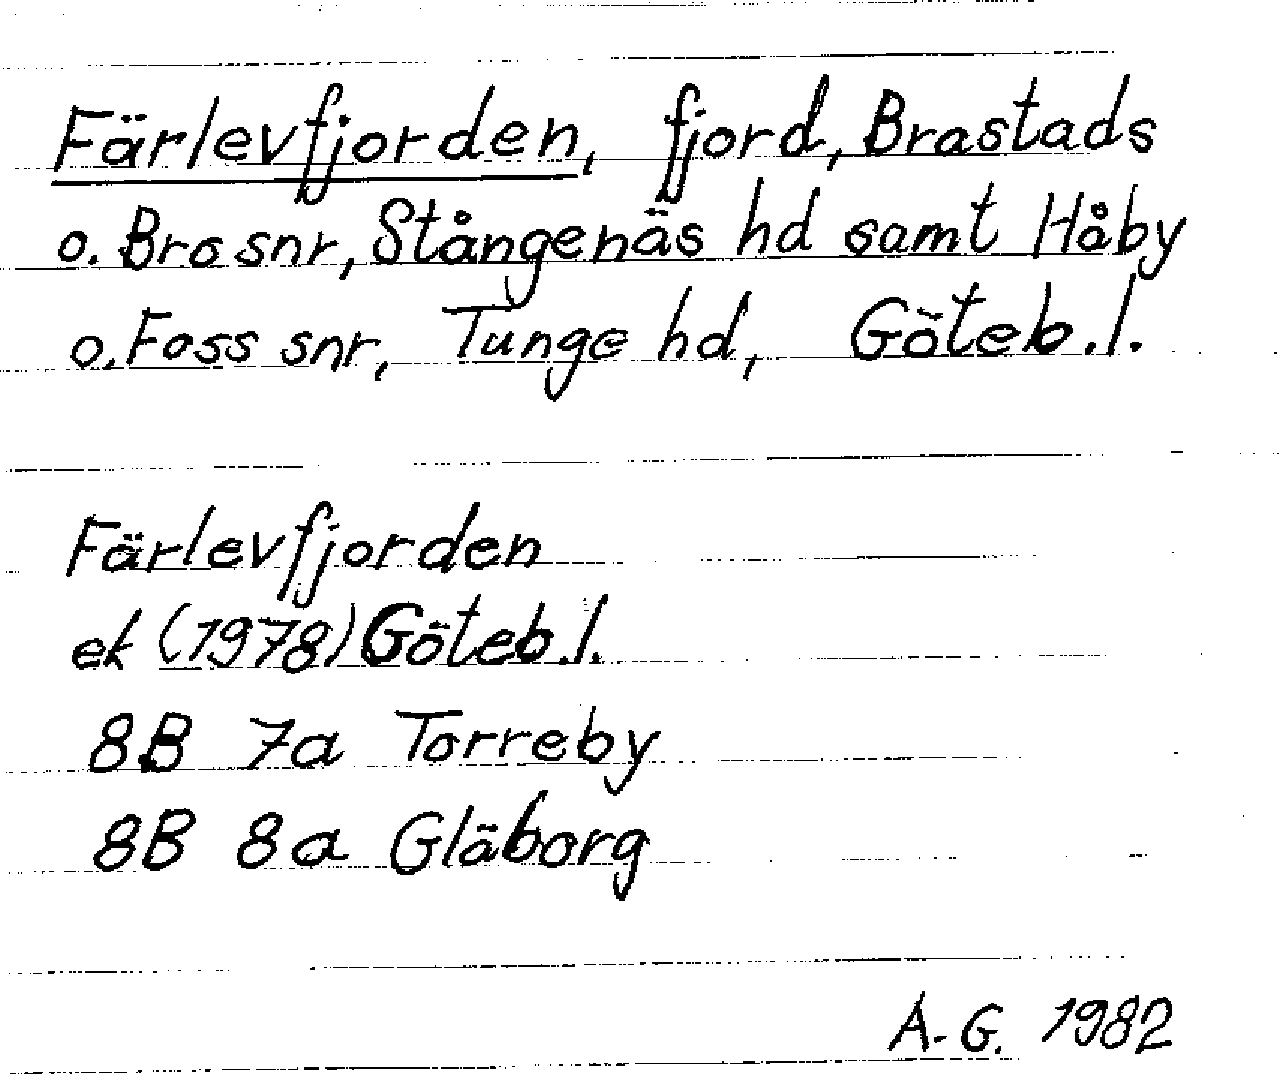 Färlevfjorden, fjord, Brastads
o. Bro snr, Stångenäs hd samt Håby
o. Foss snr, Tunge hd, Göteb. l.
Färlevfjorden
ek (1978) Göteb. l.
8B 7a Torreby
8B 8a Gläborg
A.G. 1982